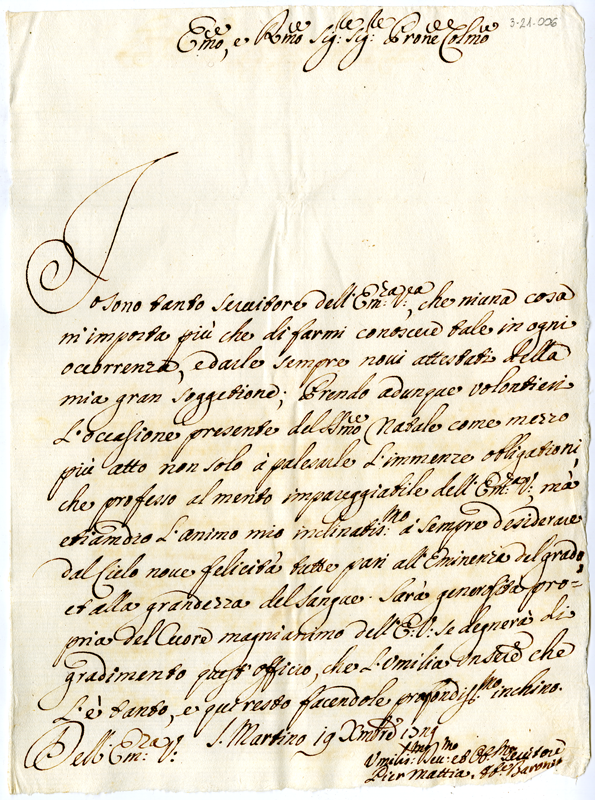 3-21-006
Emo, e Rmo Sig: Sig: Prone Colmo
Io sono tanto servitore dell'Emza V:ra, che niuna cosa
m'importa più che di farmi conoscere tale in ogni
occorrenza, e darle sempre novi attestati della
mia gran soggettione; Prendo adunque volontieri
L'occasione presente del Smo Natale come mezzo
più atto non solo à palesarle L'immenze obligationi,
che professo al merito impareggiabile dell'Emza V:, mà
etiamdio L'animo mio inclinatismo à sempre desiderare
dal Cielo nove felicità tutte pari all'Eminenza del grado,
et alla grandezza del sangue. Sarà generosità pro=
pria del Cuore magnianimo dell'E: V: se degnerà di
gradimento quest'officio, che L'umilia un serre che
L'è tanto, e qui resto facendole profondissmo inchino.
Dell'Emza V:
S. Martino 19 Xmbre
Umilismo
Pier Mattia